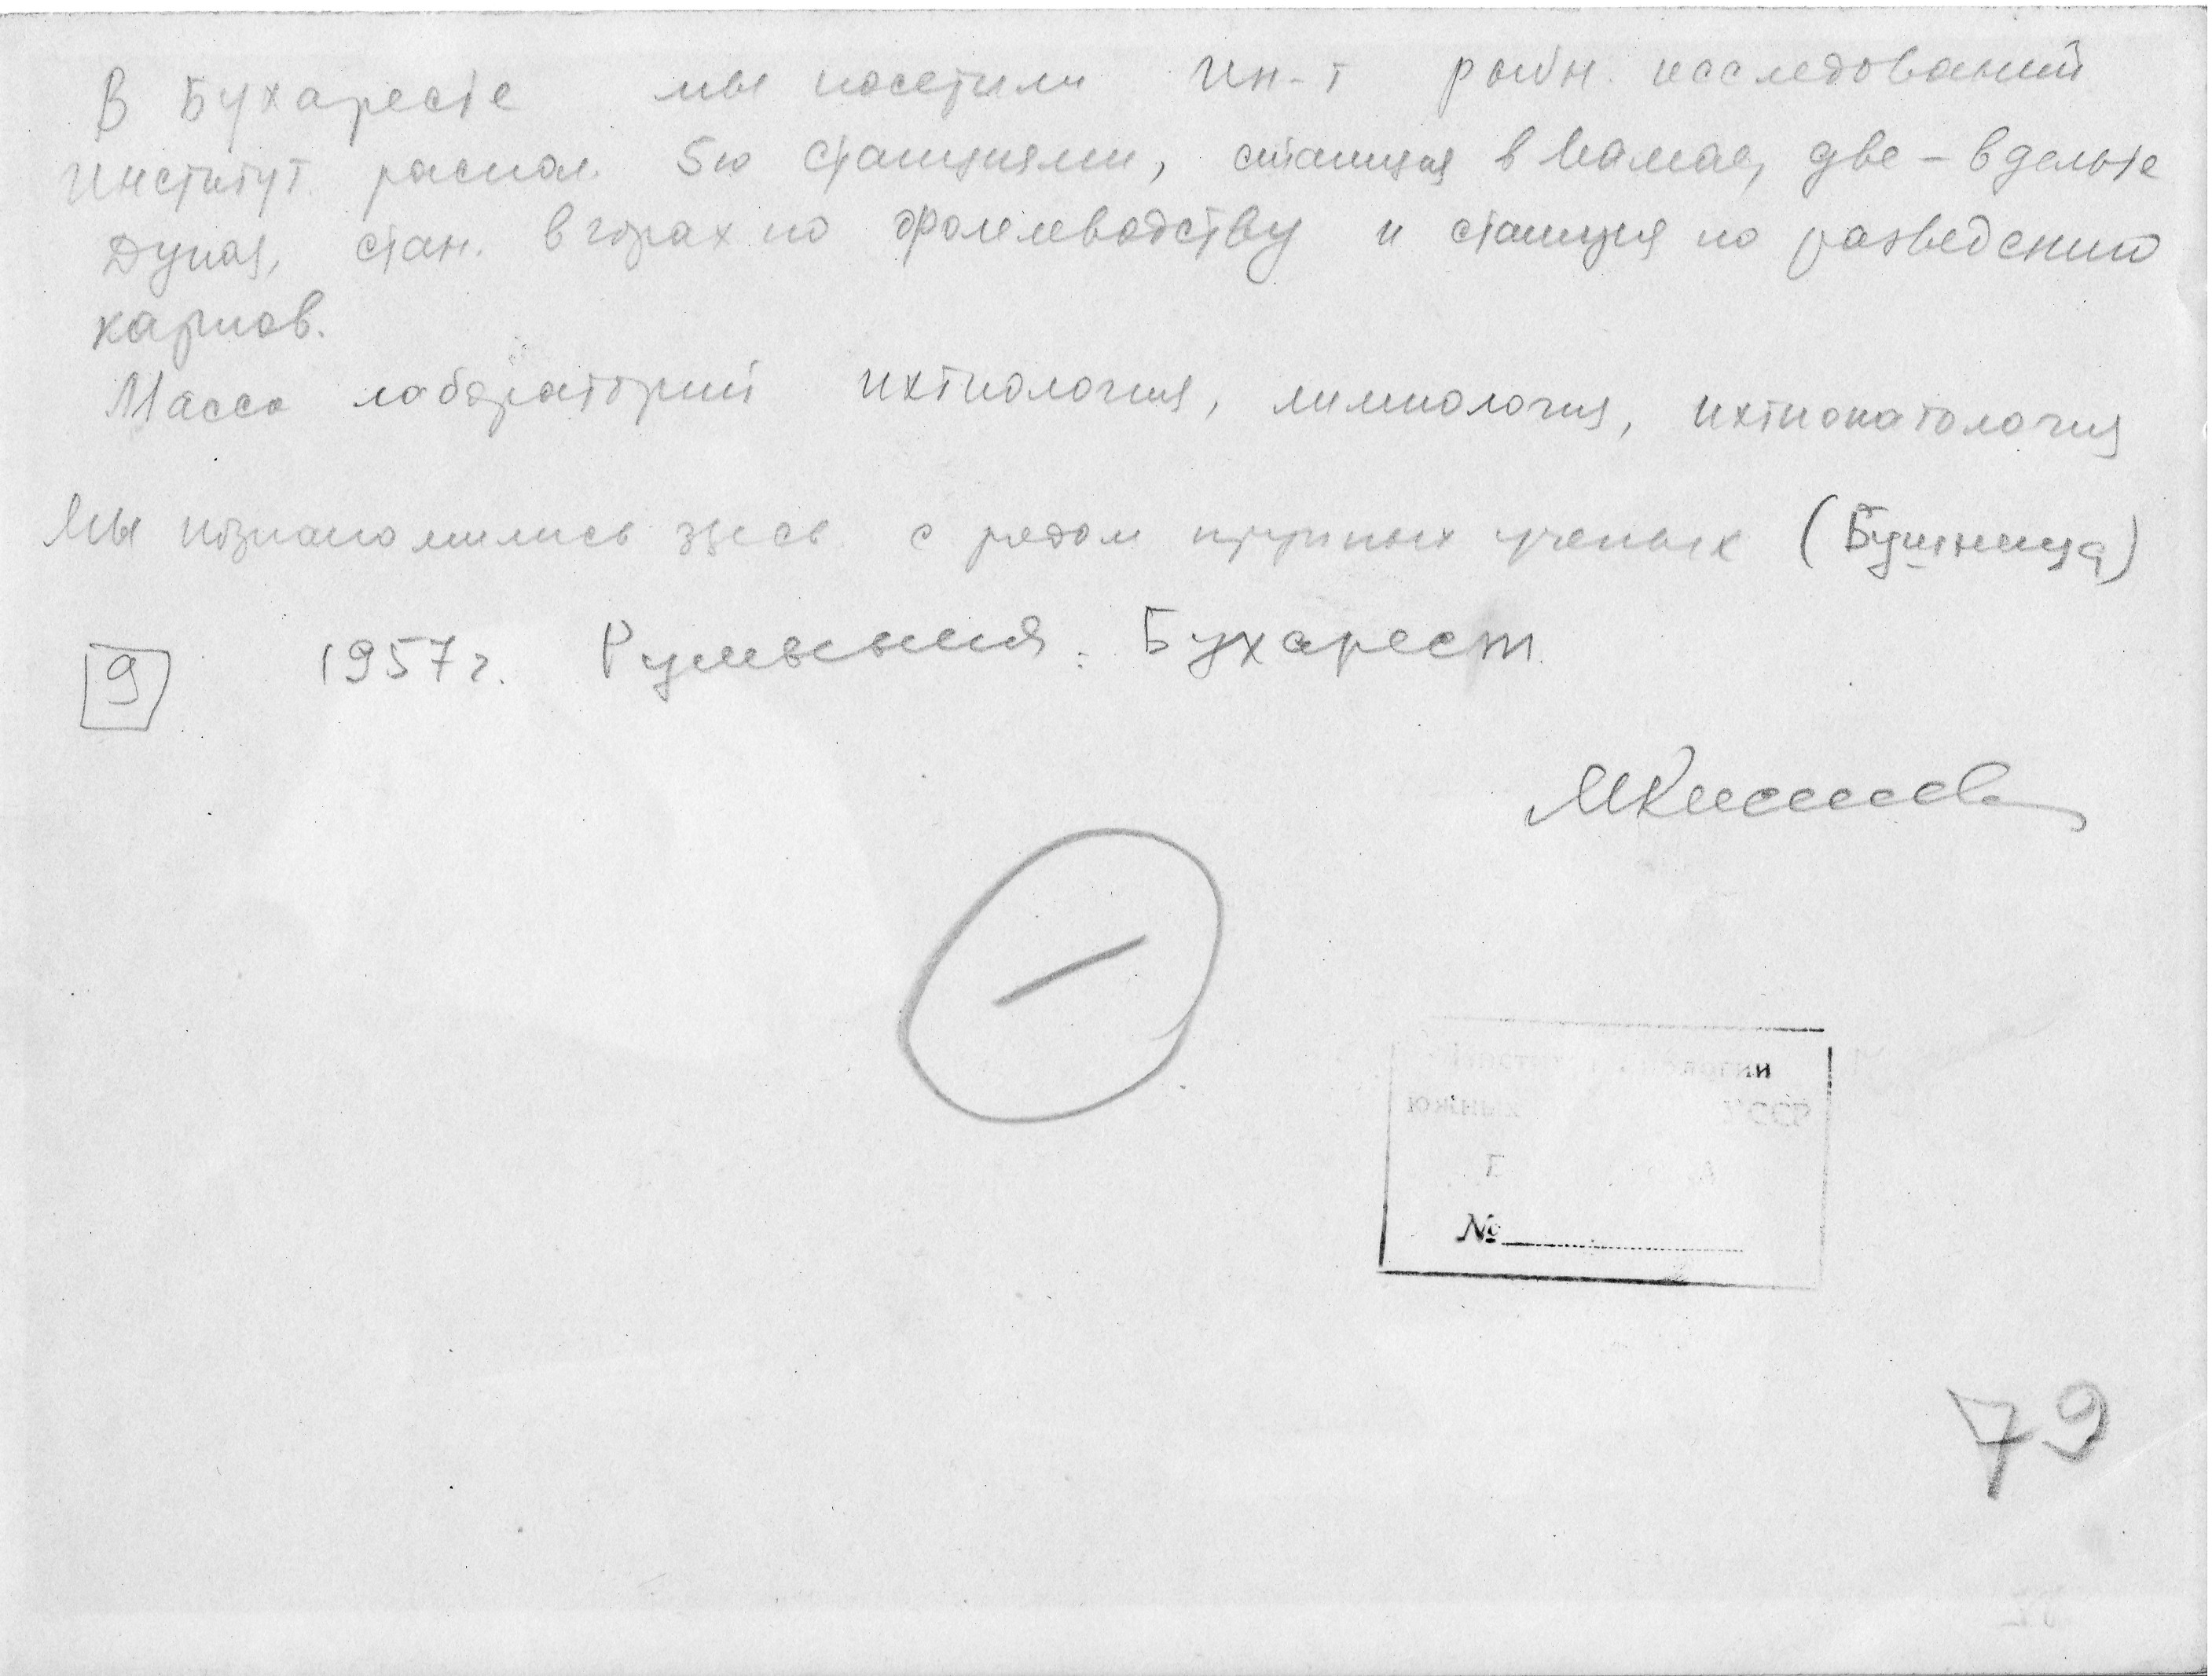 В Бухаресте мы посетили Ин-т рыбн. исследований
Институт распол. 5ю станциями, станция в Мамае, две - в дельте
Дуная, стан. в горах по форелеводству и станция по разведению
карпов.
Масса лабораторий ихтиология, лимнология, ихтиопатология
Мы познакомились здесь с рядом крупных ученых (Бушница)
9 1957 г. Румыния: Бухарест.
МКиселева
№
79